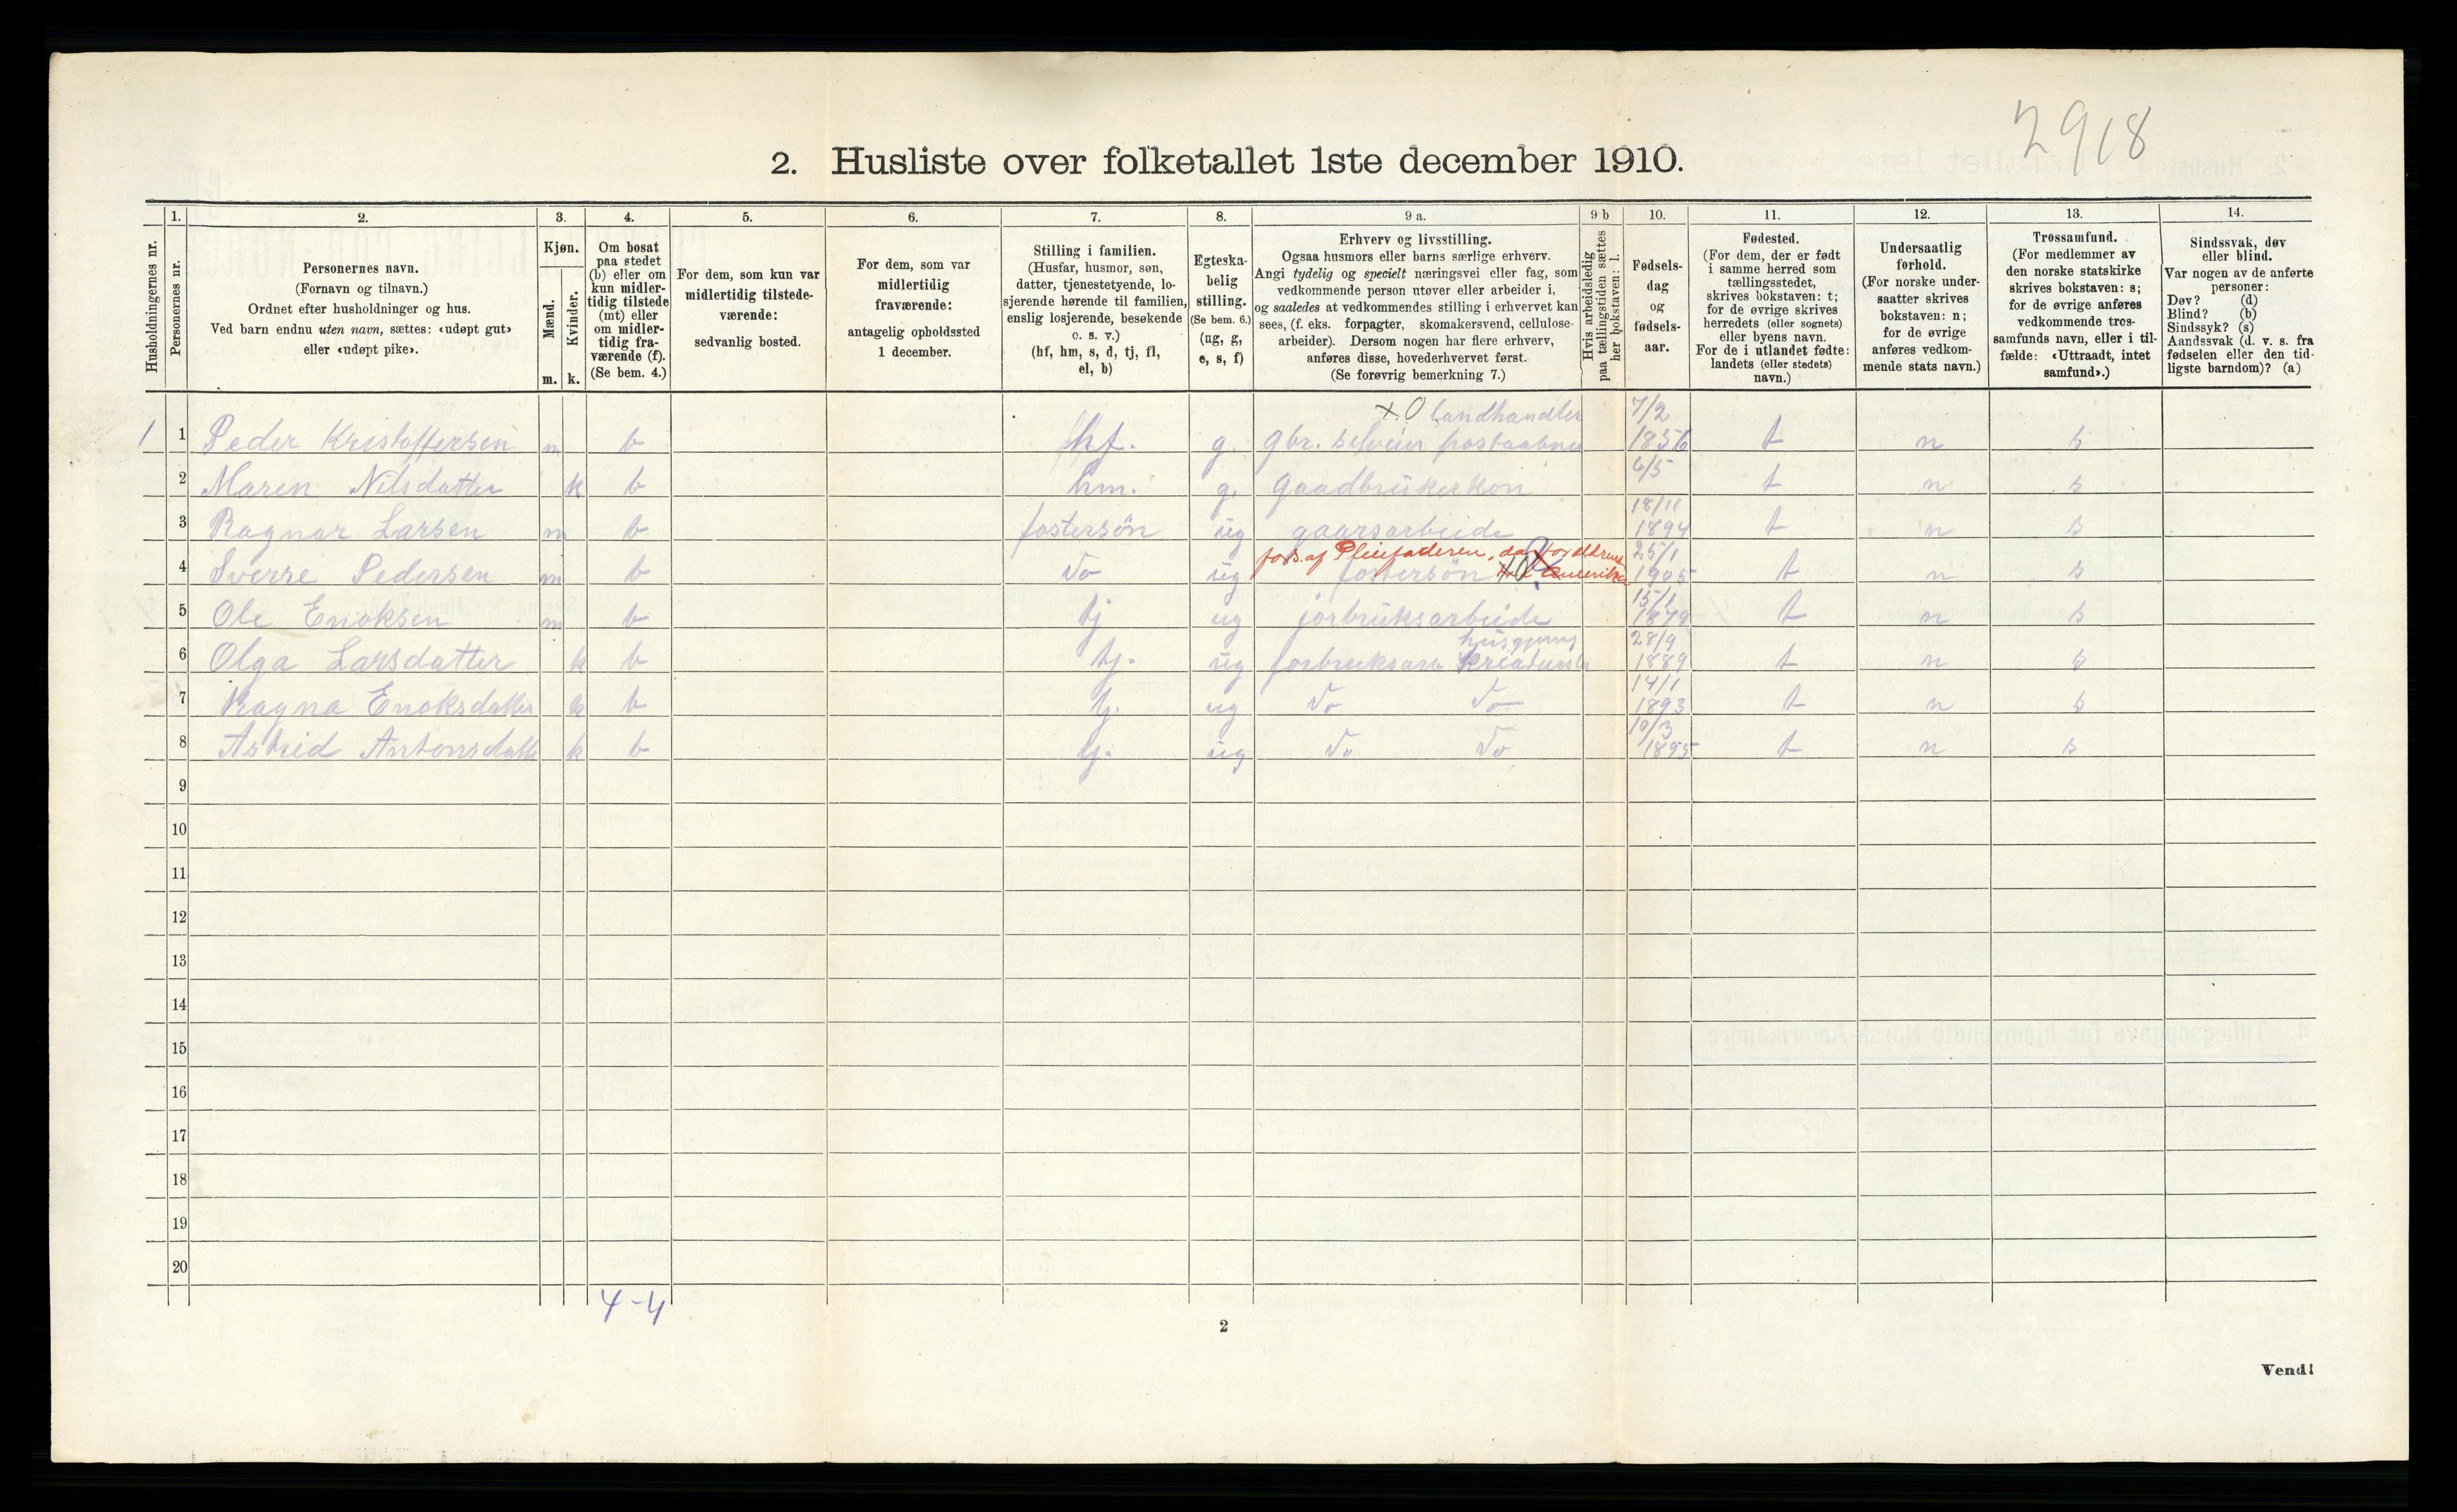 2918
2. Husliste over folketallet 1ste december 1910.
1. 2. 3. 4. 5. 6. 7. 8. 9 a. 9 b 10. 11. 12. 13. 14.
Husholdningernes nr.
Personernes nr.
Personernes navn.
(Fornavn og tilnavn.)
Ordnet efter husholdninger og hus.
Ved barn endnu uten navn, sættes: «udøpt gut»
eller «udøpt pike».
Kjøn.
Mænd.
Kvinder.
m. k.
Om bosat
paa stedet
(b) eller om
kun midler-
tidig tilstede
(mt) eller
om midler-
tidig fra-
værende (f).
(Se bem. 4.)
For dem, som kun var
midlertidig tilstede-
værende:
sedvanlig bosted.
For dem, som var
midlertidig
fraværende:
antagelig opholdssted
1 december.
Stilling i familien.
(Husfar, husmor, søn,
datter, tjenestetyende, lo-
sjerende hørende til familien,
enslig losjerende, besøkende
o. s. v.)
(hf, hm, s, d, tj, fl,
el, b)
Egteska-
belig
stilling.
(Se bem. 6.)
(ug, g,
e, s, f)
Erhverv og livsstilling.
Ogsaa husmors eller barns særlige erhverv.
Angi tydelig og specielt næringsvei eller fag, som
vedkommende person utøver eller arbeider i,
og saaledes at vedkommendes stilling i erhvervet kan
sees, (f. eks. forpagter, skomakersvend, cellulose-
arbeider). Dersom nogen har flere erhverv,
anføres disse, hovederhvervet først.
(Se forøvrig bemerkning 7.)
Hvis arbeidsledig
paa tællingstiden sættes
her bokstaven: l.
Fødsels-
dag
og
fødsels-
aar.
Fødested.
(For dem, der er født
i samme herred som
tællingsstedet,
skrives bokstaven: t;
for de øvrige skrives
herredets (eller sognets)
eller byens navn.
For de i utlandet fødte:
landets (eller stedets)
navn.)
Undersaatlig
forhold.
(For norske under-
saatter skrives
bokstaven: n;
for de øvrige
anføres vedkom-
mende stats navn.)
Trossamfund.
(For medlemmer av
den norske statskirke
skrives bokstaven: s;
for de øvrige anføres
vedkommende tros-
samfunds navn, eller i til-
fælde: «Uttraadt, intet
samfund».)
Sindssvak, døv
eller blind.
Var nogen av de anførte
personer:
Døv? (d)
Blind? (b)
Sindssyk? (s)
Aandssvak (d. v. s. fra
fødselen eller den tid-
ligste barndom)? (a)
x.0 landhandler 7/2
1 1 Peder Kristoffersen m b hf. g. gbr. selveier postaabner 1856 t n s
6/5
2 Maren Nilsdatter k b hm. g. gaadbrukerkon t n s
18/11
3 Ragnar Larsen m b fostersön ug gaarsarbeide 1894 t n s
fors. af Pleiefaderen, da foreldrene 25/1
4 Sverre Pedersen m b do ug fostersön x0 Amerika 1905 t n s
15/1
5 Ole Enoksen m b tj ug jorbruksarbeide 1879 t n s
husgjerning 28/9
6 Olga Larsdatter k b tj. ug jorbruksarb Kreaturst 1889 t n s
14/1
7 Ragna Enoksdatter k b tj. ug do do 1893 t n s
10/3
8 Astrid Antonsdatt k b tj. ug do do 1895 t n s
9
10
11
12
13
14
15
16
17
18
19
20
4-4
2
Vend!